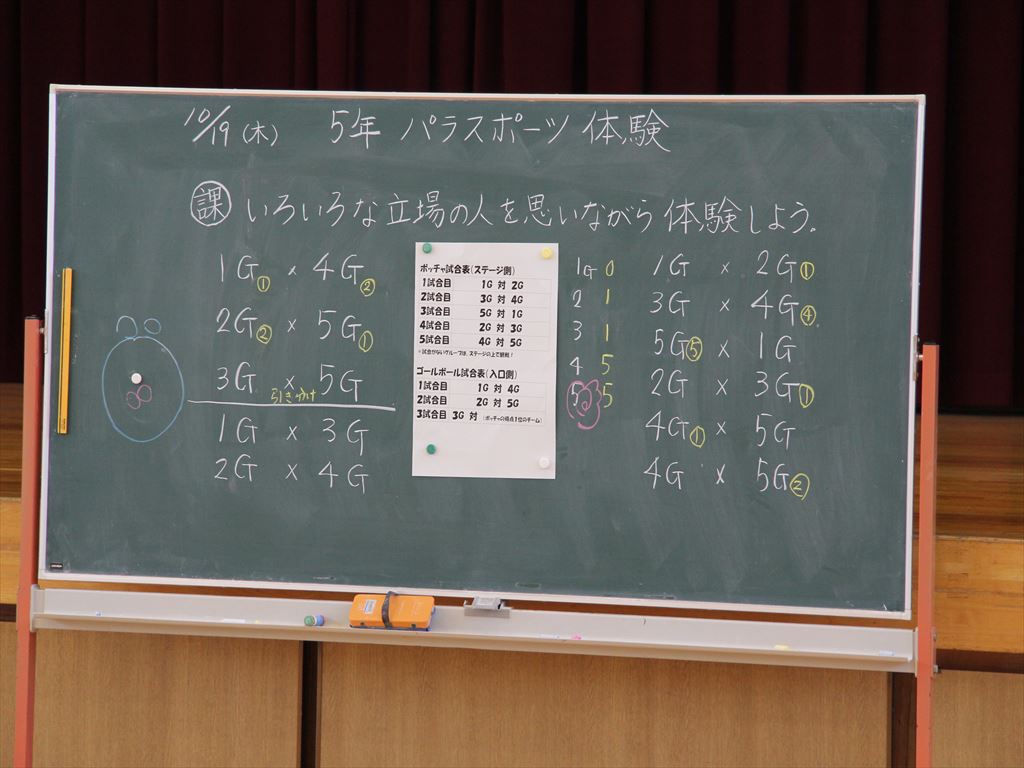 10/19(木) 5年 パラスポーツ体験
課 いろいろな立場の人を思いながら体験しよう。
1G① × 4G②
2G② × 5G①
3G × 5G
引き分け
1G × 3G
2G × 4G
ボッチャ試合表(ステージ側)
1試合目 1G 対 2G
2試合目 3G 対 4G
3試合目 5G 対 1G
4試合目 2G 対 3G
5試合目 4G 対 5G
※試合がないグループは、ステージの上で観戦!
ゴールボール試合表(入口側)
1試合目 1G 対 4G
2試合目 2G 対 5G
3試合目 3G 対 (ボッチャの得点1位のチーム)
1G 0
2 1
3 1
4 5
5 5
1G × 2G①
3G × 4G④
5G⑤ × 1G
2G × 3G①
4G① × 5G
4G × 5G②